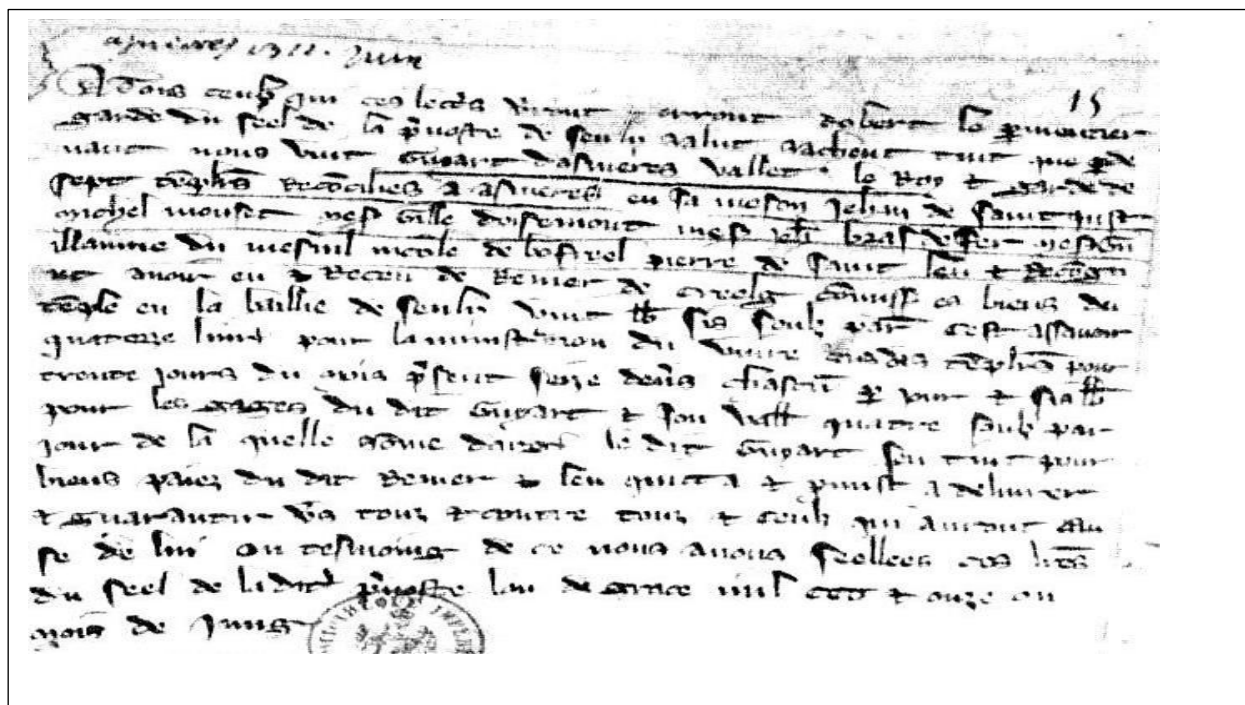 asnieres 1311. Juin
15
A touz ceulz qui ces lettres verront et orront Robert le parmentier
garde du seel de la prevoste de senliz salut sachent tuit que par de
vant nous vint Guyart dasnieres vallet le Roy et garde de
sept templiers Reconciliés a asnieres en sa meson Jehan de saint just
michel mouset gille doisemont jeh bras de fer
illaume du mesnil nicole de bosrel pierre de saint leu et Recongn
ut avoir eu et Receu de Renier de creeilg commiss es biens du
temple en la baillie de senliz vint lb sis soulz par cest assavoir
quatorze livres pour laministration du vivre diz templiers pour
trente jours du mois present seze deniers chascun par jour et sis lb
pour les gages du dit Guyart et son vallet quatre soulz par
jour de la quelle dit Guyart sen tint pour
biens paiez du dit Renier et len quicta et promist a delivrer
et Guarantir vers touz et contre touz et ceulz qui auront cau
se de lui en tesmoing de ce nous avons seellees ces lettres
du seel de ladite prevoste lan de grace mil ccc et onze ou
mois de Juing